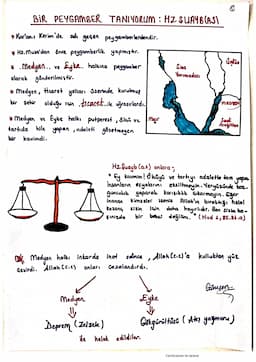 BİR PEYGAMBER TANIYORUM : HZ ŞUAYB(AS)
* Kur'an-ı Kerim'de adı geçen peygamberlerdendir.
* Hz. Musa'dan önce peygamberlik yapmıştır.
* Medyen ve Eyke halkına peygamber
olarak gönderilmiştir.
* Medyen, ticaret yolları üzerinde kurulmuş
bir şehir olduğu için ticaret ile uğraşırlardı.
* Medyen ve Eyke halkı putperest, ölçü ve
tartıda hile yapan, adaleti gözetmeyen
bir kavimdi.
Sina
Yarımadası
Eyke
Medyen
Mısır
Hz. Şuayb (a.s) onlara;
" Ey kavmim! Ölçüyü ve tartıyı adaletle tam yapın
İnsanların eşyalarını eksiltmeyin. Yeryüzünde boz-
gunculuk yaparak karışıklık çıkarmayın. Eğer
inanan kimseler iseniz Allah'ın bıraktığı helal
kazanç sizin için daha hayırlıdır. Ben size be-
" (Hud Suresi, 85. 86. a)
Medyen halkı inkarda inat edince, Allah (c.c)'a kulluktan yüz
çevirdi. Allah (c.c) onları cezalandırdı.
Medyen
Eyke
Deprem (Zelzele)
Gökgürültüsü (Ateş yağmuru)
ile helak edildiler.